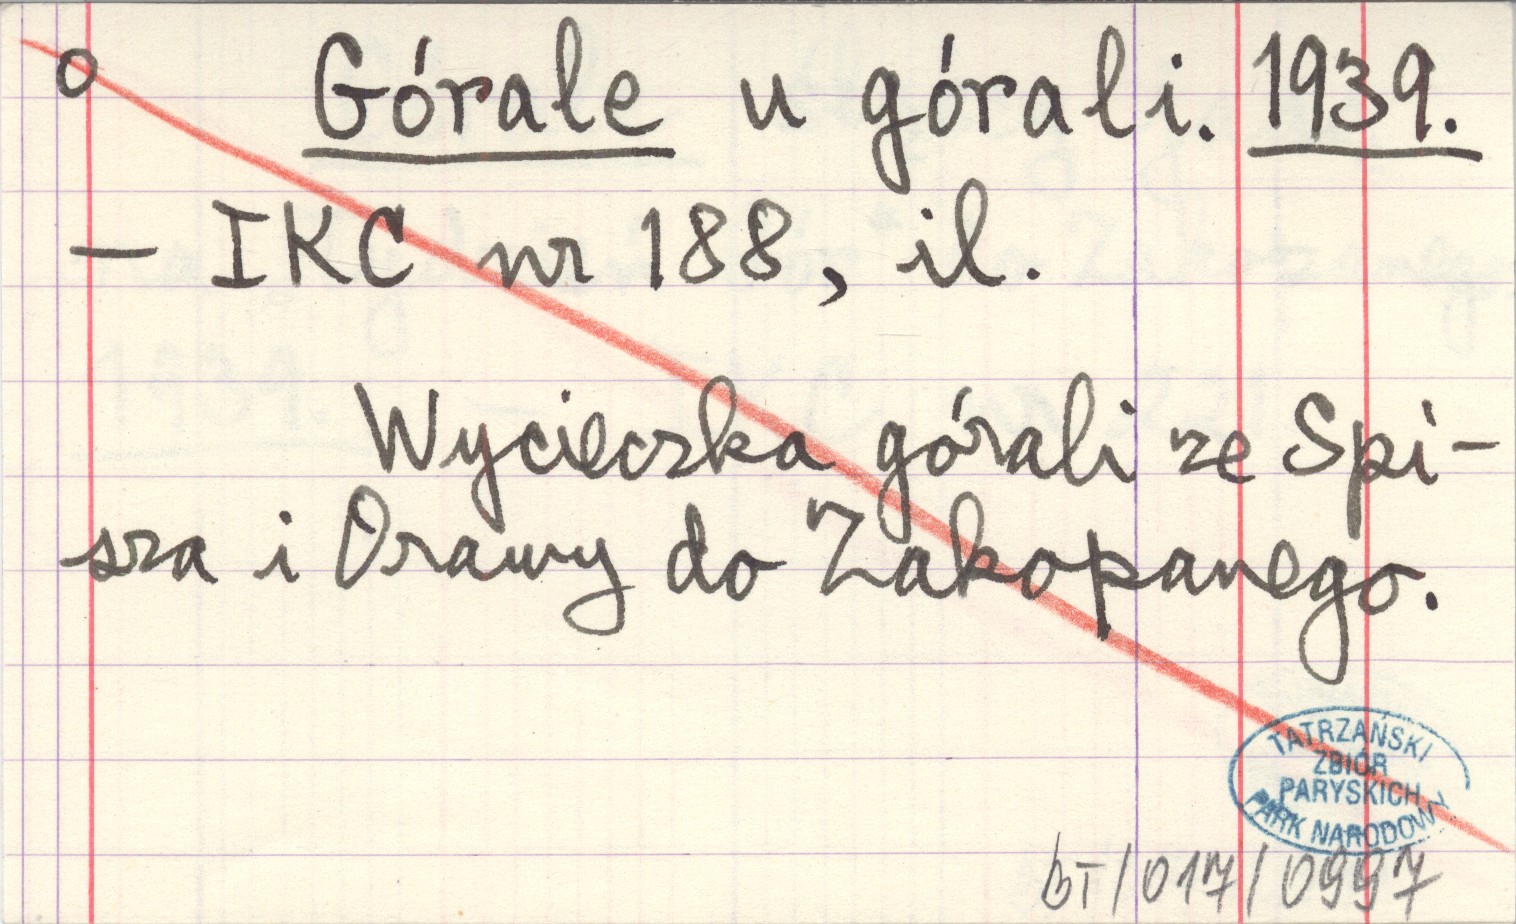 o Górale u górali. 1939.
– IKC nr 188, il.
Wycieczka górali ze Spi-
sza i Orawy do Zakopanego.
TATRZAŃSKI
ZBIÓR
PARYSKICH
PARK NARODOWY
BT/017/0997